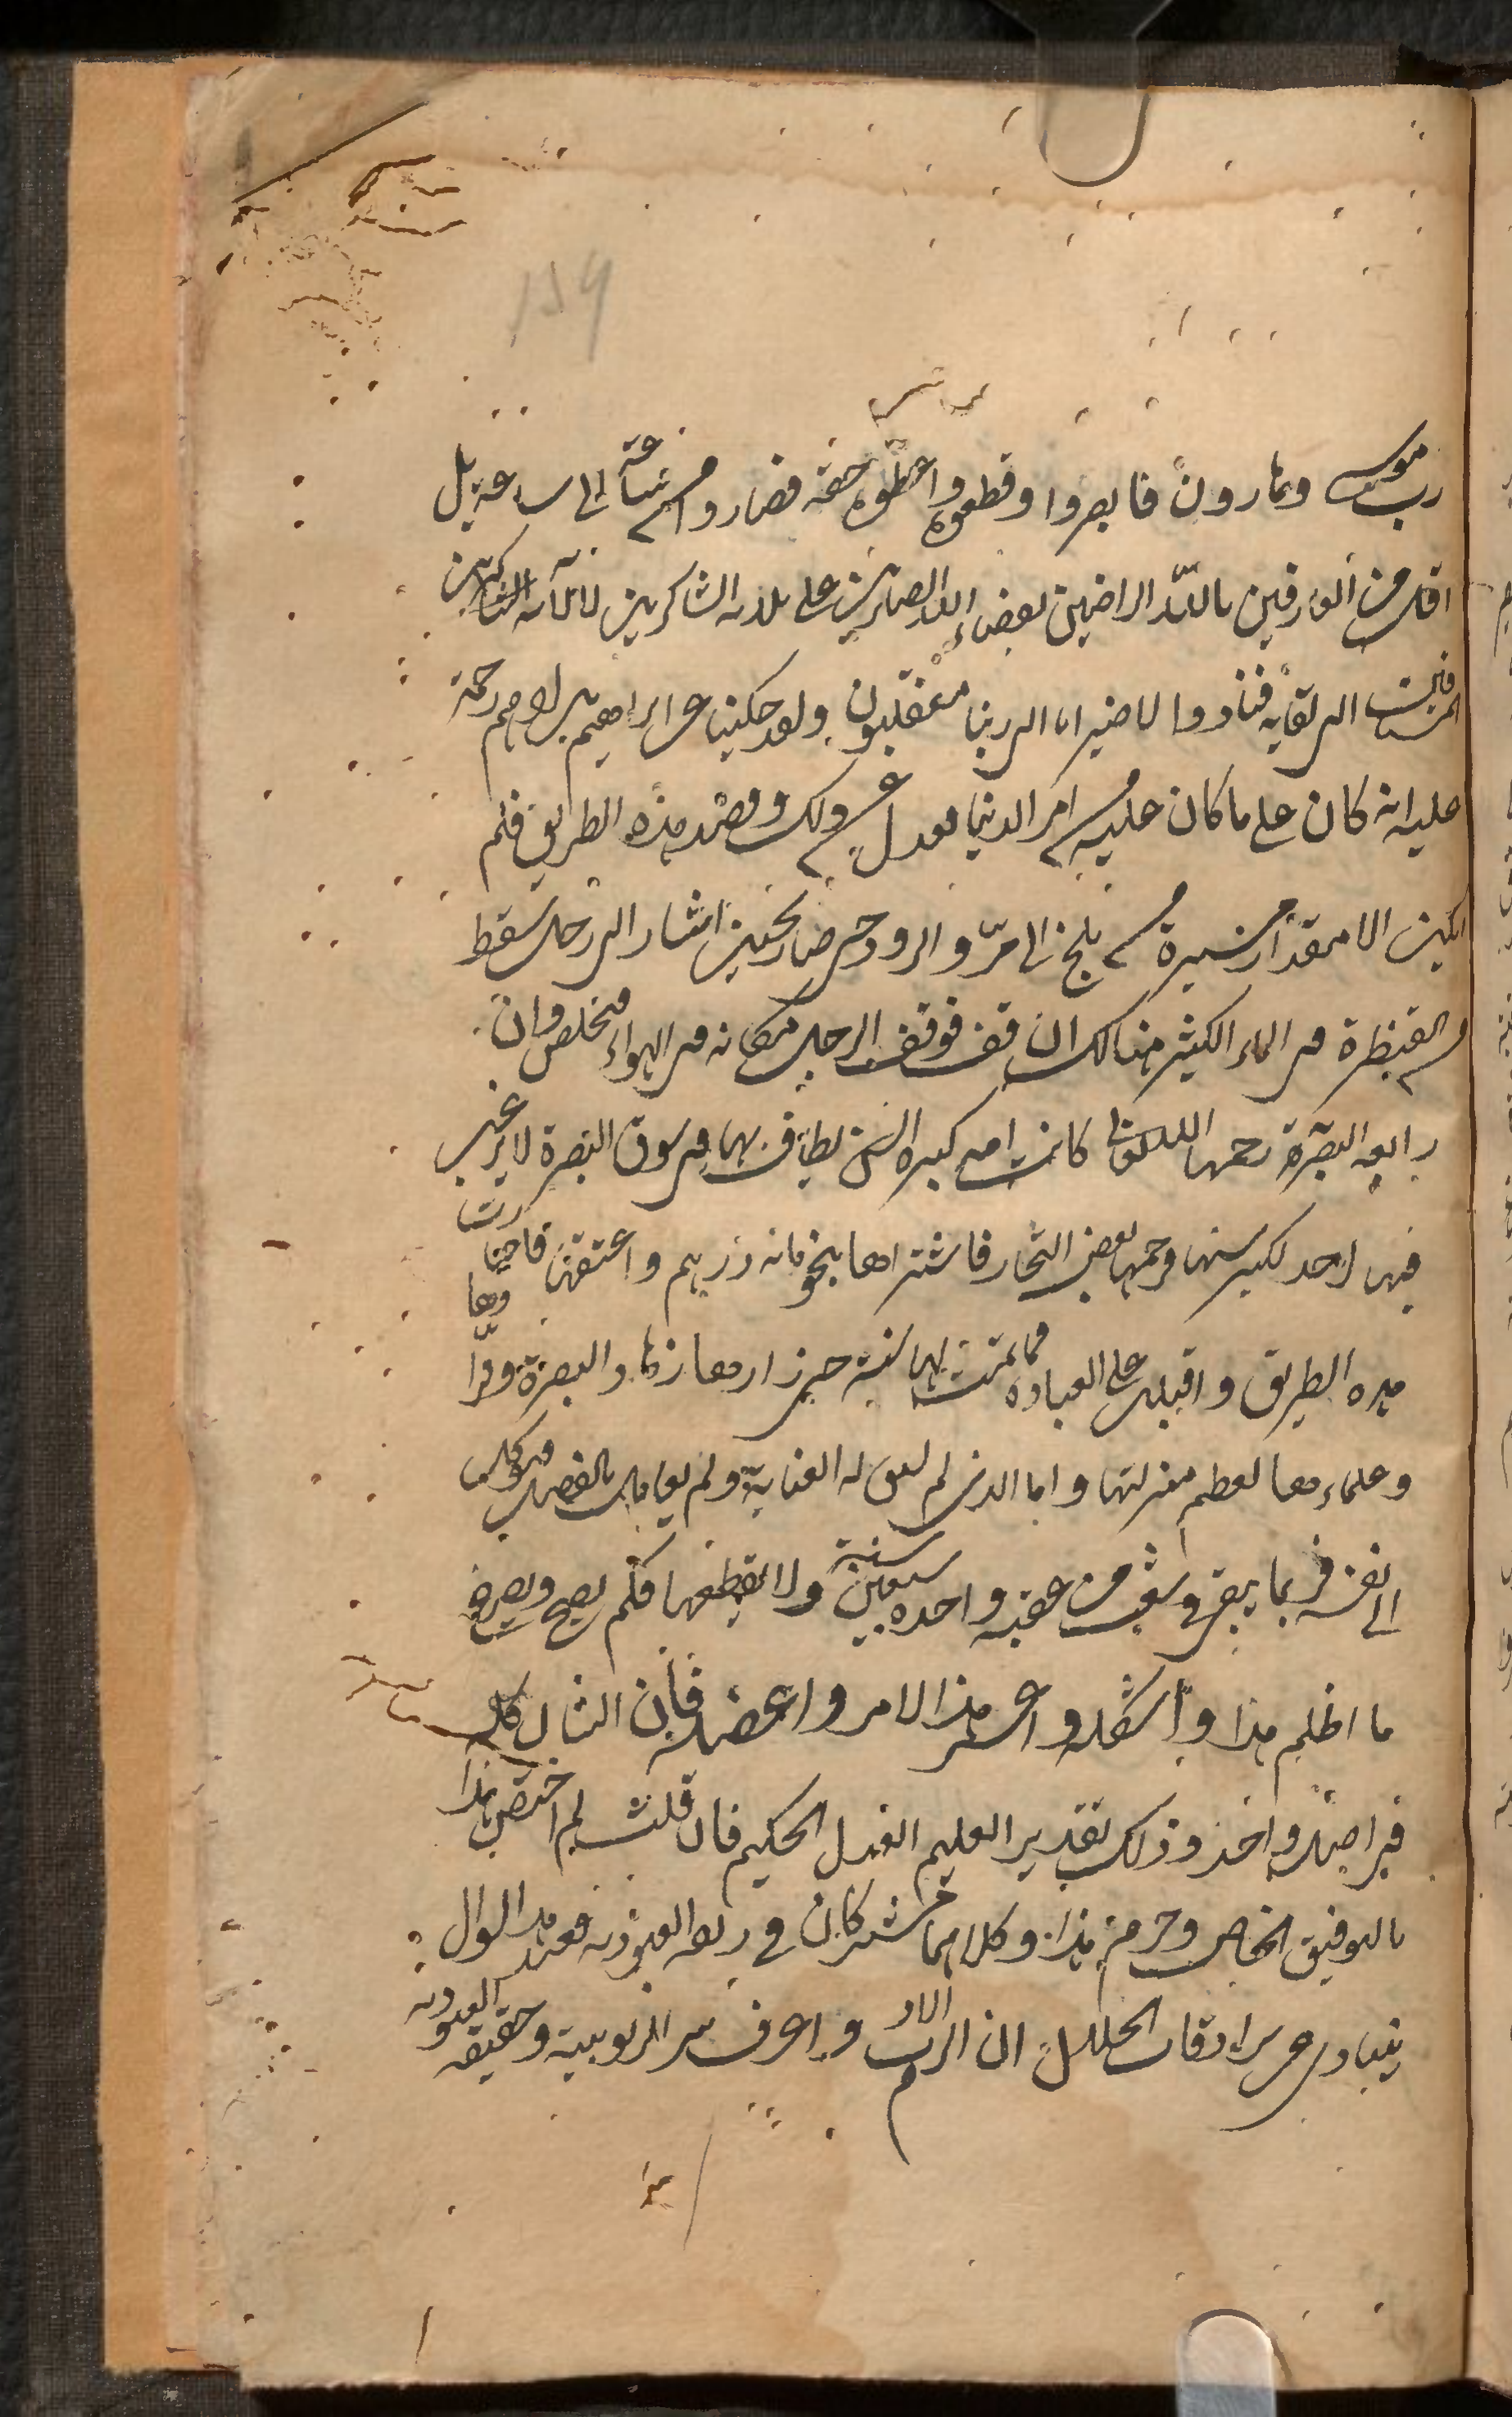 159
رب موسى وهارون فابصروا وقطعوه واعطوه حقه فصاروا من ساعة الى ساعة بل
اقل من العارفين بالله الراضين بقضاء الله الصابرين على بلائه الشاكرين لالآئه المشتاقين
الى لقايه فنادوا لا ضير انا الى ربنا منقلبون ولقد حكينا عن ابراهيم بن ادهم رحمة
عليه انه كان على ما كان عليه من امر الدنيا فعدل عن ذلك وقصد هذه الطريق فلم
يكن الا مقدار سيره من بلخ الى مرو الرود حتى صار بحيث اشار الى رجل سقط
من القنطرة في الماء الكثير هنالك ان قف فوقف الرجل مكانه في الهواء فتخلص وان
رابعه البصرة رحمها الله كانت امه كبيرة السن يطاف بها في سوق البصرة لا يرغب
فيها احد لكبر سنها فرحمها بعض التجار فاشتراها بنحو مائه درهم واعتقها فاختارت
هذه الطريق واقبلت على العباده فما تمت لها سنة حتى زارها زهاد البصرة وقراوها
وعلماءها لعظم منزلتها واما الذى لم تسبق له العناية ولم يعامل بالفضل فيوكل
الى نفسه فربما يبقى في شعب من عقبه واحده سبعين سنة ولا يقطعها فكم يصيح ويصرخ
ما اظلم هذا واشكله واعسر هذا الامر واعضله فان الشان كله
في اصل واحد وذلك تقدير العليم العدل الحكيم فان قلت لم اختص هذا
بالتوفيق الخاص وحرم هذا وكلاهما مشتركان في ربقه العبوديه فعند هذا السوال
ينادى من سرادقات الجلال ان الزم الادب واعرف سر الربوبية وحقيقه العبوديه